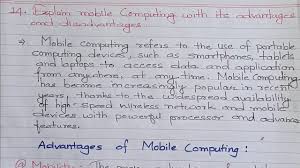 14. Explain mobile Computing with its advantages
and disadvantages.
→ Mobile computing refers to the use of portable
computing devices, such as smartphones, tablets
and laptops to access data and application
from anywhere, at any time. Mobile Computing
has become increasingly popular in recent
years, thanks to the widespread availability
of high-speed wireless network and mobile
devices with powerful processor and advance
features.
Advantages of Mobile Computing :